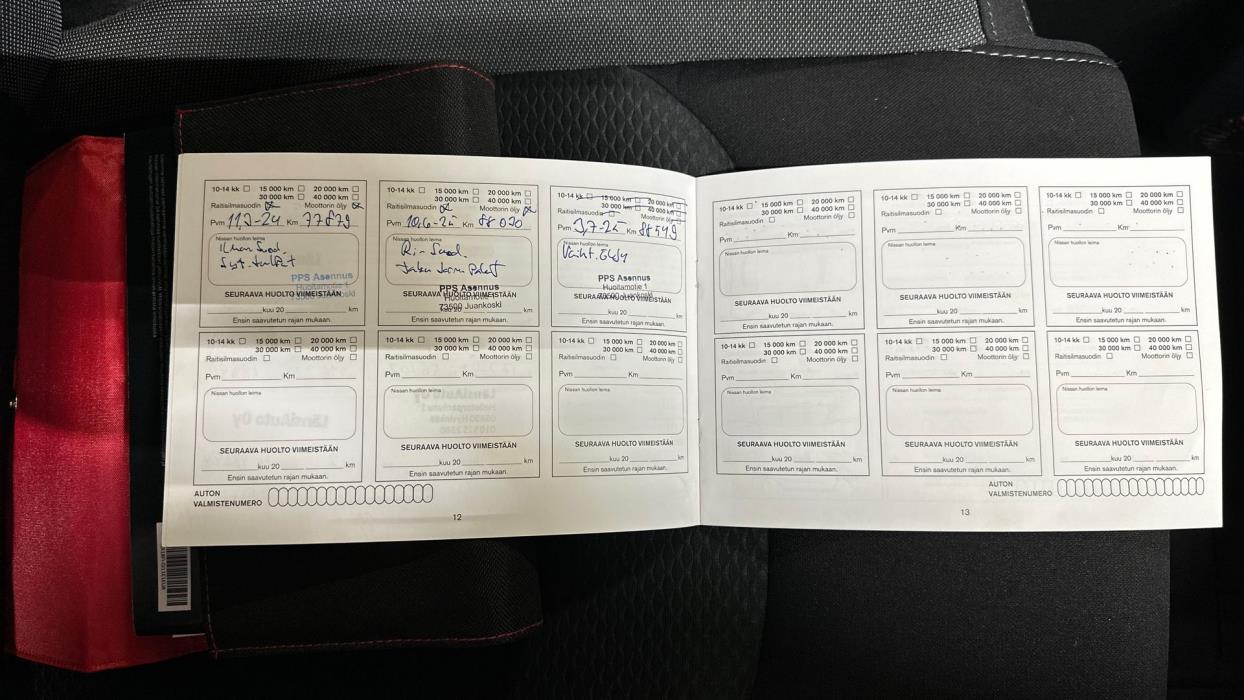 10-14 kk 15 000 km 20 000 km
30 000 km 40 000 km
Raitisilmasuodin Moottorin öljy
Pvm Km 77879
Nissan huollon leima
PPS Asennus
Huoltamotie 1
Juankoski
SEURAAVA HUOLTO VIIMEISTÄÄN
kuu 20 km
Ensin saavutetun rajan mukaan.
10-14 kk 15 000 km 20 000 km
30 000 km 40 000 km
Raitisilmasuodin Moottorin öljy
Pvm 10.6-25 Km 88 020
Nissan huollon leima
PPS Asennus
Huoltamotie 1
73500 Juankoski
SEURAAVA HUOLTO VIIMEISTÄÄN
kuu 20 km
Ensin saavutetun rajan mukaan.
10-14 kk 15 000 km 20 000 km
30 000 km 40 000 km
Raitisilmasuodin Moottorin öljy
Pvm Km 88549
Nissan huollon leima
Vaiht.
PPS Asennus
Huoltamotie 1
Juankoski
SEURAAVA HUOLTO VIIMEISTÄÄN
kuu 20 km
Ensin saavutetun rajan mukaan.
10-14 kk 15 000 km 20 000 km
30 000 km 40 000 km
Raitisilmasuodin Moottorin öljy
Pvm Km
Nissan huollon leima
SEURAAVA HUOLTO VIIMEISTÄÄN
kuu 20 km
Ensin saavutetun rajan mukaan.
10-14 kk 15 000 km 20 000 km
30 000 km 40 000 km
Raitisilmasuodin Moottorin öljy
Pvm Km
Nissan huollon leima
SEURAAVA HUOLTO VIIMEISTÄÄN
kuu 20 km
Ensin saavutetun rajan mukaan.
10-14 kk 15 000 km 20 000 km
30 000 km 40 000 km
Raitisilmasuodin Moottorin öljy
Pvm Km
Nissan huollon leima
SEURAAVA HUOLTO VIIMEISTÄÄN
kuu 20 km
Ensin saavutetun rajan mukaan.
10-14 kk 15 000 km 20 000 km
30 000 km 40 000 km
Raitisilmasuodin Moottorin öljy
Pvm Km
Nissan huollon leima
SEURAAVA HUOLTO VIIMEISTÄÄN
kuu 20 km
Ensin saavutetun rajan mukaan.
10-14 kk 15 000 km 20 000 km
30 000 km 40 000 km
Raitisilmasuodin Moottorin öljy
Pvm Km
Nissan huollon leima
SEURAAVA HUOLTO VIIMEISTÄÄN
kuu 20 km
Ensin saavutetun rajan mukaan.
10-14 kk 15 000 km 20 000 km
30 000 km 40 000 km
Raitisilmasuodin Moottorin öljy
Pvm Km
Nissan huollon leima
SEURAAVA HUOLTO VIIMEISTÄÄN
kuu 20 km
Ensin saavutetun rajan mukaan.
10-14 kk 15 000 km 20 000 km
30 000 km 40 000 km
Raitisilmasuodin Moottorin öljy
Pvm Km
Nissan huollon leima
SEURAAVA HUOLTO VIIMEISTÄÄN
kuu 20 km
Ensin saavutetun rajan mukaan.
10-14 kk 15 000 km 20 000 km
30 000 km 40 000 km
Raitisilmasuodin Moottorin öljy
Pvm Km
Nissan huollon leima
SEURAAVA HUOLTO VIIMEISTÄÄN
kuu 20 km
Ensin saavutetun rajan mukaan.
10-14 kk 15 000 km 20 000 km
30 000 km 40 000 km
Raitisilmasuodin Moottorin öljy
Pvm Km
Nissan huollon leima
SEURAAVA HUOLTO VIIMEISTÄÄN
kuu 20 km
Ensin saavutetun rajan mukaan.
AUTON
VALMISTENUMERO
12
AUTON
VALMISTENUMERO
13